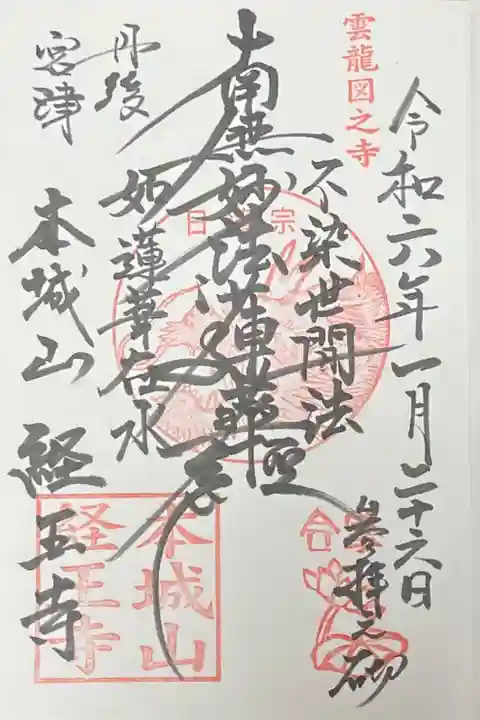 雲龍図之寺
令和六年一月二十六日
参拝之砌
不染世間法
南無妙法蓮華経
如蓮華在水
丹後
宮津
本城山 経王寺
日 宗
本城山
経王寺
合